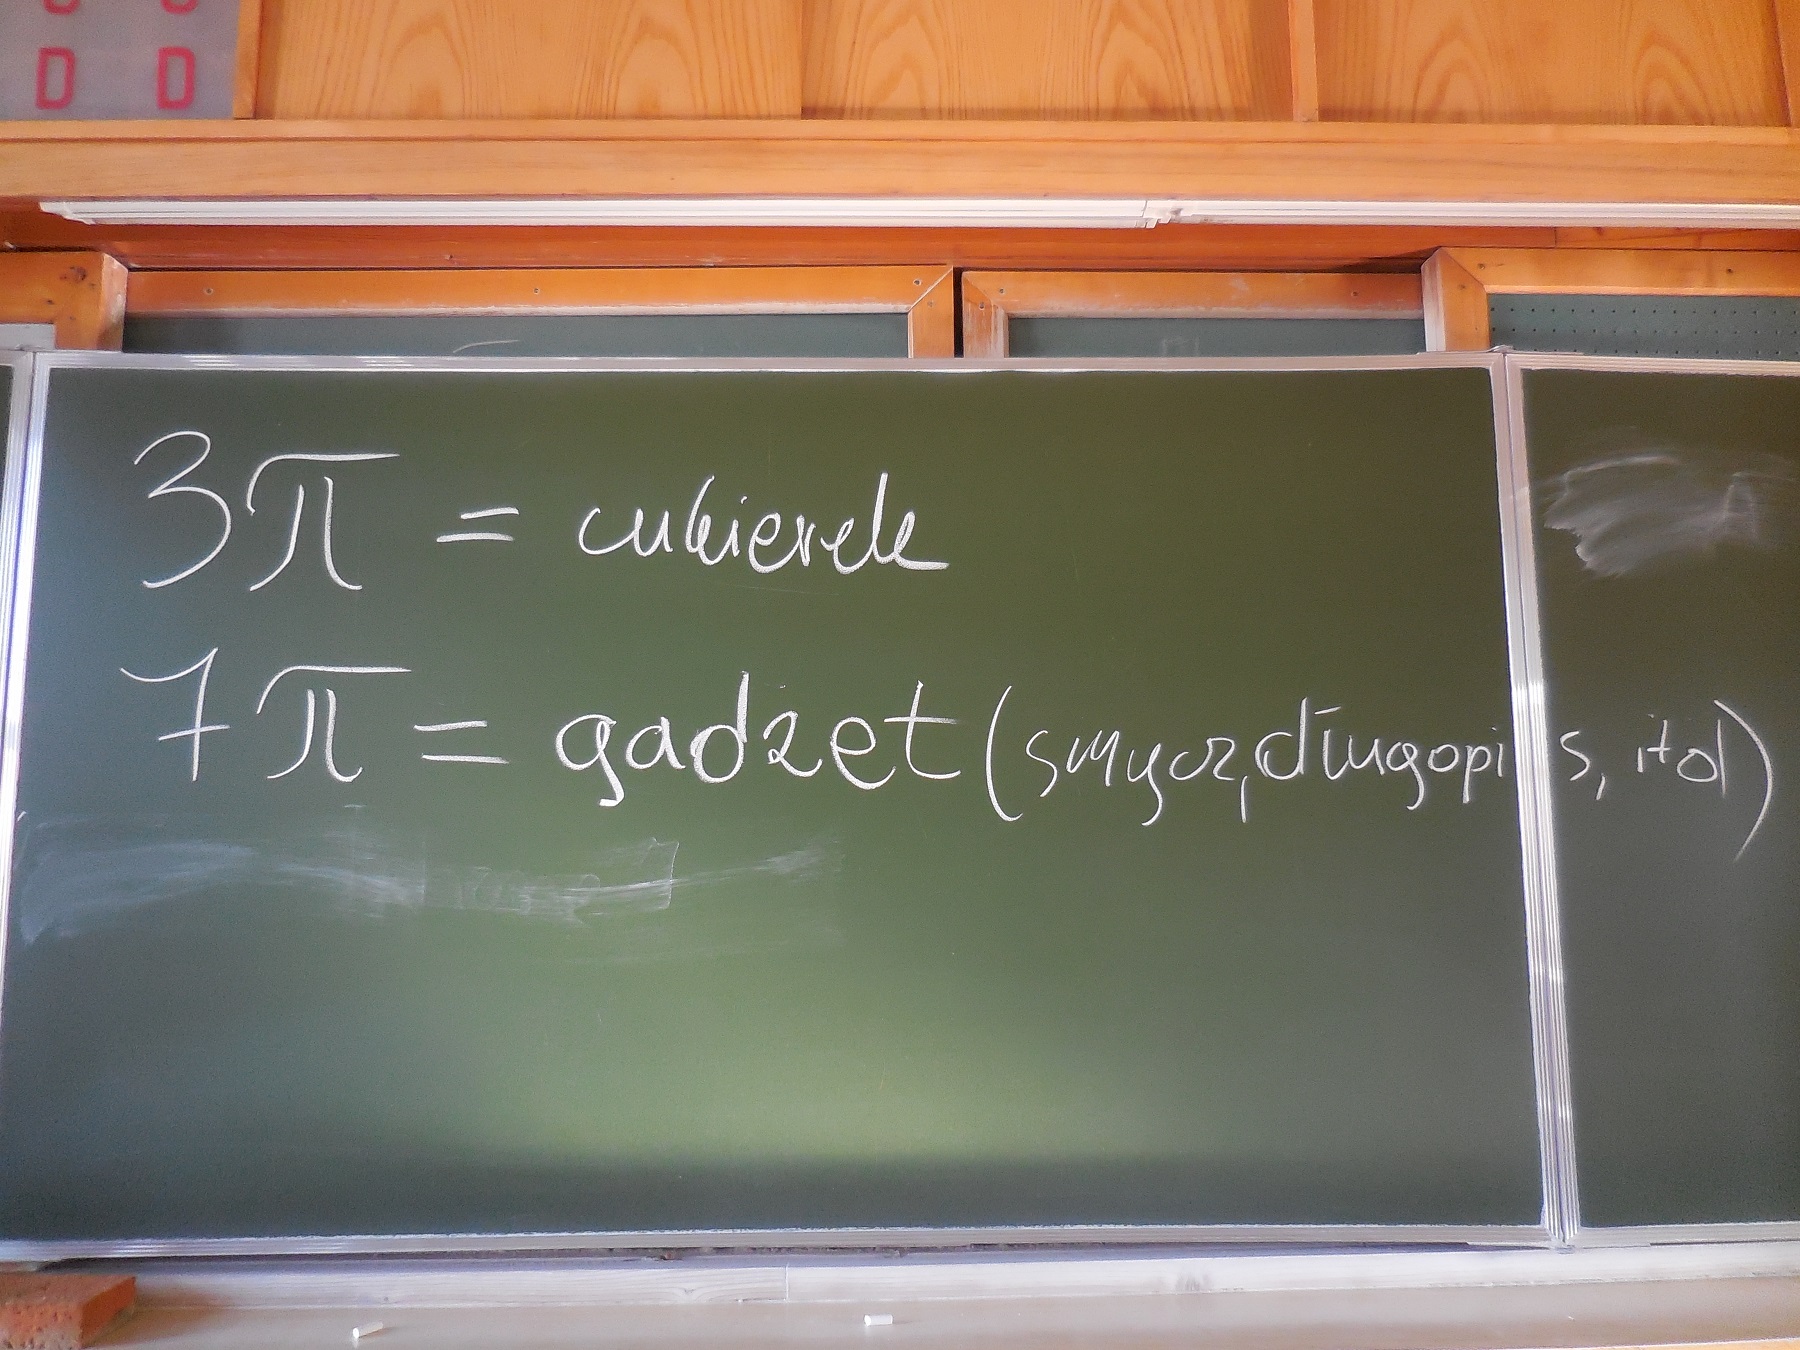 D D
3π = cukierek
7π = gadżet (smycz, długopis, itd)